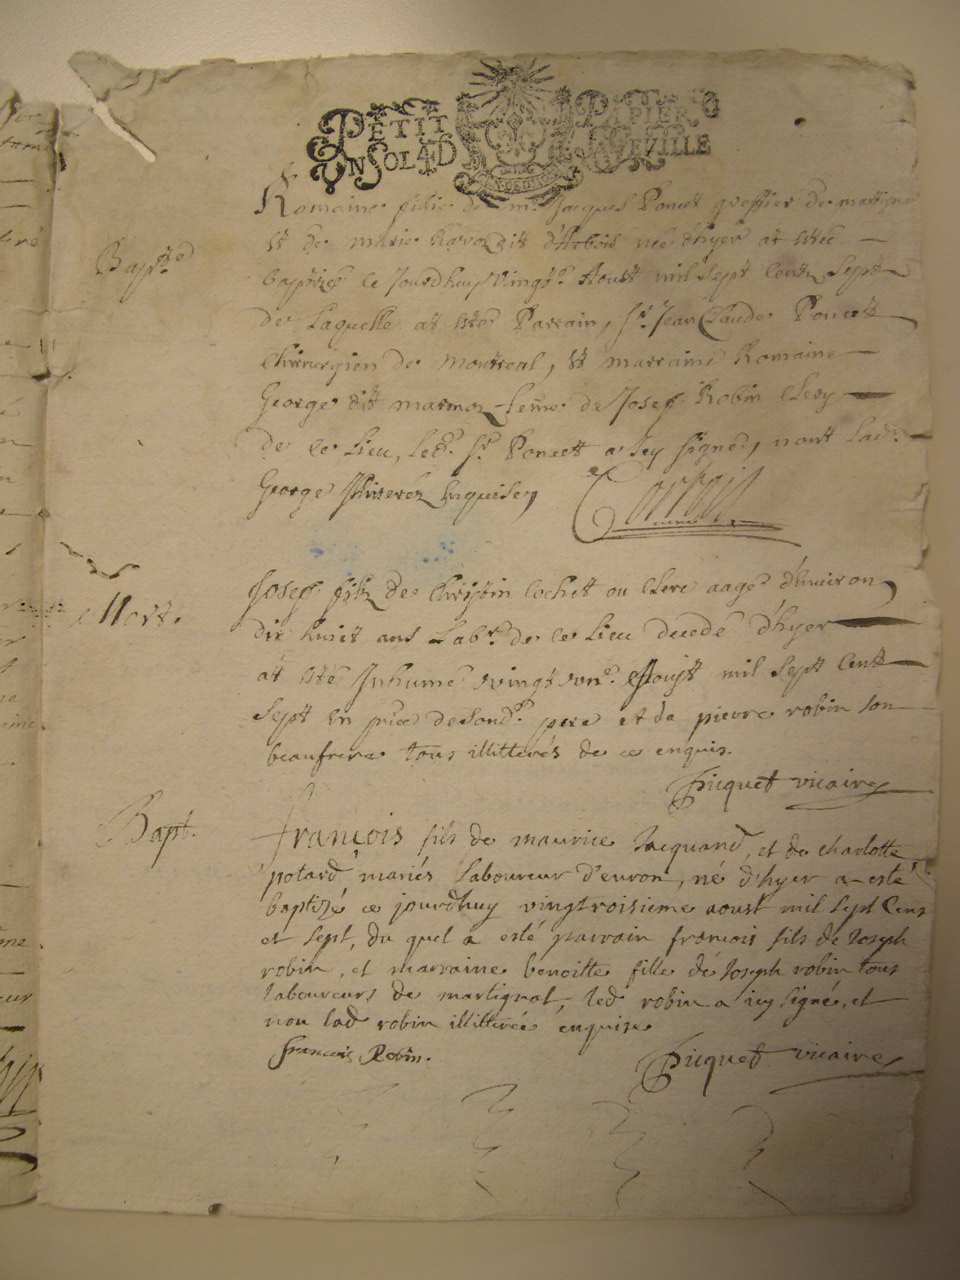 PETIT PAPIER
UN SOL 4D
Romaine fille de mr. Jacques Poncet greffier de martigna
et de marie née d'hyer at esté
baptizée ce Jourdhuy vingtr. Aoust mil sept centz sept
de Laquelle at esté Parrain, sr. Jean Claude Poncet
Chirurgien de Montreal, et marraine Romaine
George dit marmoz feme de Josep Robin Clerc
de ce Lieu, led. sr. Poncet a icy signé, nont lad.
George Illiterez Enquise,
Bapte
Josep filz de Christin Cochet ou Clerc aagé d'environ
dix huict ans Labr. de ce Lieu decedé d'hyer
at esté Inhumé vingt un. Aoust mil sept Cent
Sept En pñce desond. pere et de pierre robin son
beaufrere tous illitterés de ce enquis.
Mort.
Picquet vicaire
Bapt.
francois fils de maurice Jacquand, et de charlotte
potard mariés Laboureur d'euron, né d'hyer a esté
baptizé ce jourdhuy vingtroisieme aoust mil sept Cens
et sept, du quel a esté parrain francois fils de Joseph
robin, et marraine benoitte fille de Joseph robin tous
laboureurs de martignat, led robin a icy signé, et
non lad robin illitterée enquise
francois Robin.
Picquet vicaire